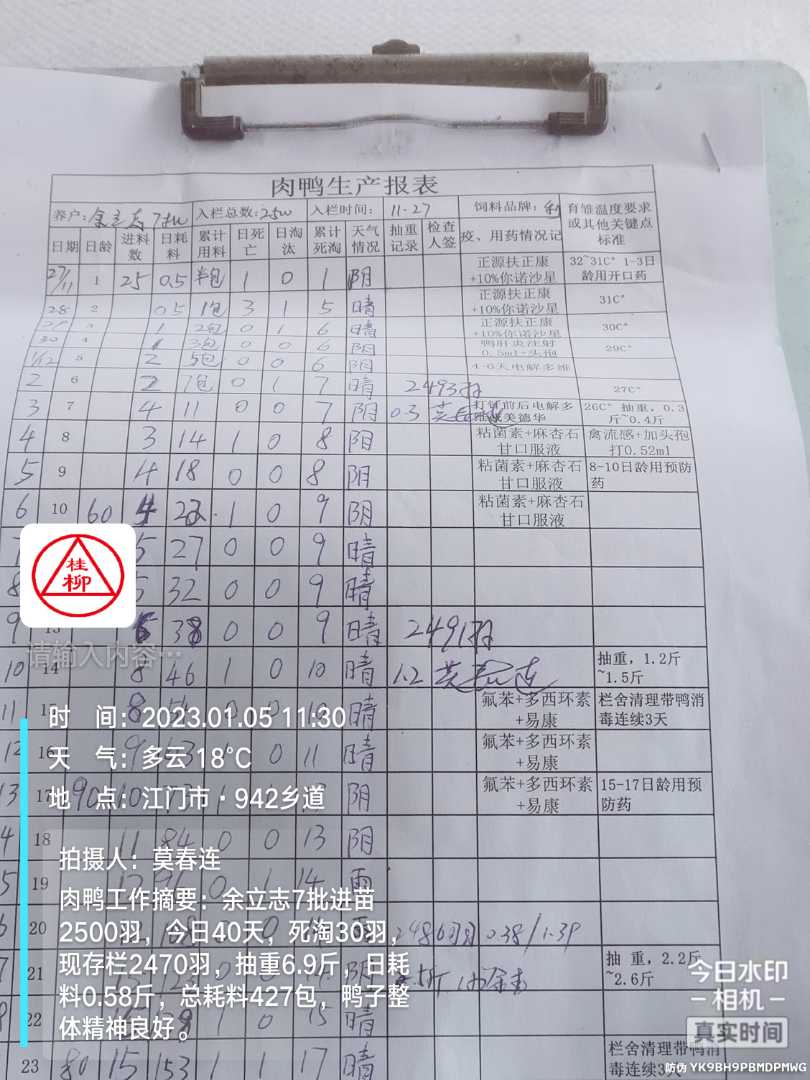 肉鸭生产报表
养户: 余立志7批 入栏总数: 2500 入栏时间: 11-27 饲料品牌: 育雏温度要求或其他关键点标准
日期 日龄 进料数 日耗料 累计用料 日死亡 日淘汰 累计死淘 天气情况 抽重记录 检查人签 疫、用药情况记
27/11 1 25 0.5 半包 1 0 1 阴 正源扶正康+10%你诺沙星 32~31C° 1-3日龄用开口药
28 2 0.5 1包 3 1 5 晴 正源扶正康+10%你诺沙星 31C°
29 3 1 2包 0 1 6 晴 正源扶正康+10%你诺沙星 30C°
30 4 1 3包 0 0 6 阴 鸭肝炎注射0.5ml+头孢 29C°
1/12 5 2 5包 0 0 6 阴 4-6天电解多维
2 6 2 7包 0 1 7 晴 2493羽 27C°
3 7 4 11 0 0 7 阴 0.3 26C° 抽重，0.3斤~0.4斤
4 8 3 14 1 0 8 阴 粘菌素+麻杏石甘口服液 禽流感+加头孢打0.52ml
5 9 4 18 0 0 8 阴 粘菌素+麻杏石甘口服液 8-10日龄用预防药
6 10 60 4 22 1 0 9 阴 粘菌素+麻杏石甘口服液
5 27 0 0 9 晴
5 32 0 0 9 晴
9 13 6 38 0 0 9 晴 2491羽
10 14 8 46 1 0 10 晴 1.2 莫春连 抽重，1.2斤~1.5斤
11 15 8 晴 氟苯+多西环素+易康 栏舍清理带鸭消毒连续3天
12 16 9 0 11 晴 氟苯+多西环素+易康
13 17 90 阴 氟苯+多西环素+易康 15-17日龄用预防药
18 11 84 0 0 13 阴
19 0 1 14 雨
20 2486羽 0.38/1.39
21 抽重，2.2斤~2.6斤
22 0 15 晴
23 80 15 153 1 1 17 晴 栏舍清理带鸭消毒连续3天
桂柳
请输入内容…
时 间: 2023.01.05 11:30
天 气: 多云 18℃
地 点: 江门市·942乡道
拍摄人: 莫春连
肉鸭工作摘要: 余立志7批进苗
2500羽，今日40天，死淘30羽，
现存栏2470羽，抽重6.9斤，日耗
料0.58斤，总耗料427包，鸭子整
体精神良好。
今日水印
相机
真实时间
防伪 YK9BH9PBMDPMWG